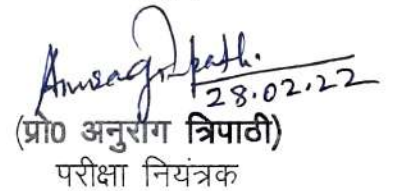 Anurag Tripathi
28.02.22
(प्रो0 अनुराग त्रिपाठी)
परीक्षा नियंत्रक